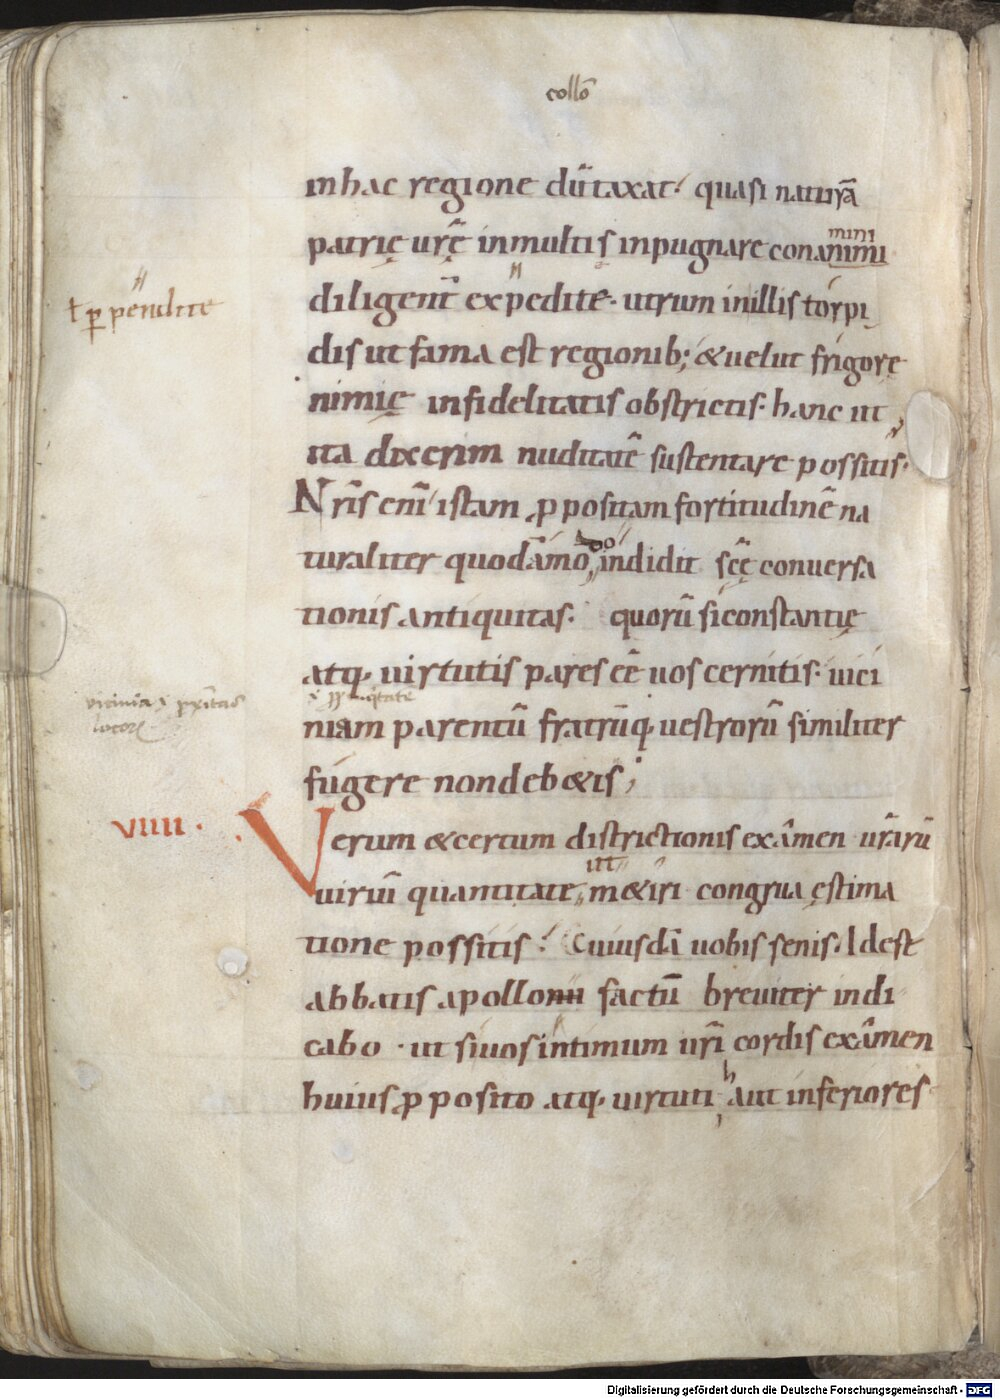 collō
in hac regione dūtaxat. quasi naturā
patrię urę̄ in multis inpugnare conamini
mini
diligent̄ expedite. utrum in illis torpi
ł p̱pendite
dis ut fama est regionib; & uelut frigore
nimię infidelitatis obstrictis. hanc ut
ita dixerim nuditatē sustentare possitis.
Nr̄is enī istam p̱positam fortitudinē na
turaliter quodāmodo indidit sc̄ę conuersa
tionis antiquitas. quorū si constantię
atq. uirtutis pares eē uos cernitis. uici
niam parentū fratrūq. uestrorū similiter
fugere non deb&is;
VIIII.
Verum & certum districtionis exâmen ur̄arū
uiriū quantitate, m&iri congrua ęstima
ut
tione possitis. Cuiusdā uobis senis. Idest
abbatis apollonii factū breuiter indi
cabo. ut si uos intimum ur̄i cordis exâmen
huius p̱posito atq. uirtuti haut inferiores.
Digitalisierung gefördert durch die Deutsche Forschungsgemeinschaft - DFG